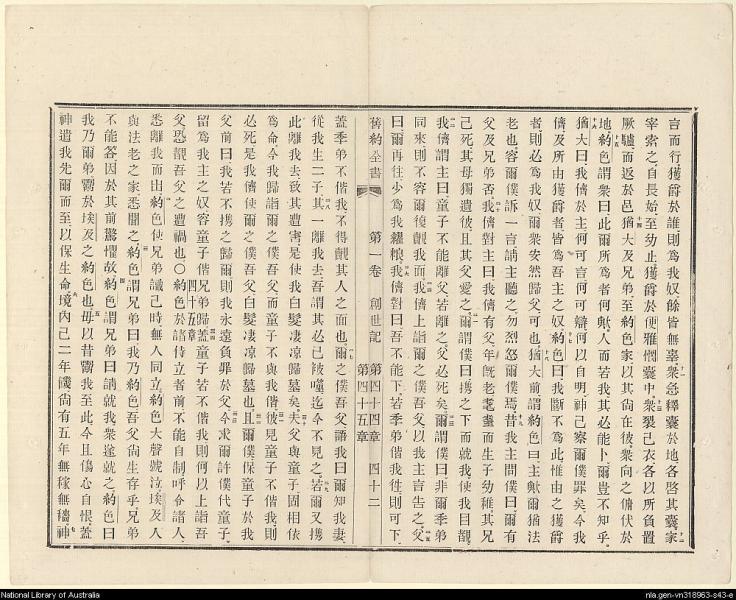 言而行獲爵於誰則爲我奴餘皆無辜衆急釋囊於地各啓其囊家
宰索之自長始至幼止獲爵於便雅憫囊中衆裂己衣各以所負置
厥驢而返於邑猶大及兄弟至約色家以其尙在彼衆向之俯伏於
地約色謂衆曰此爾所爲者何歟人而若我其必能卜爾豈不知乎
猶大曰我儕於主何可言何可辯何以自明神己察爾僕罪矣今我
儕及所由獲爵者皆爲吾主之奴約色曰我斷不爲此惟由之獲爵
者則必爲我奴爾衆安然歸父可也猶大前謂約色曰主歟爾猶法
老也容爾僕訴一言請主聽之勿烈怒爾僕焉昔我主問僕曰爾有
父及兄弟否我儕對主曰我儕有父年旣老耄耋而生子幼稚其兄
己死其母獨遺彼且其父愛之爾謂僕曰携之下而就我使我目覩
我儕謂主曰童子不能離父若離之父必死矣爾謂僕曰非爾季弟
同來則不容爾復覿我面我儕上詣爾之僕吾父以我主言告之父
曰爾再往少爲我糴粮我儕對曰吾不能下若季弟偕我往則可下
舊約全書 第一卷 創世記 第四十四章 第四十五章 四十二
蓋季弟不偕我不得覿其人之面也爾之僕吾父語我曰爾知我妻
從我生二子其一離我去吾謂其必己被噬迄今不見之若爾又携
此離我去致其遭害是使我白髮凄凉歸墓矣夫父與童子固相依
爲命今我歸詣爾之僕吾父而童子不與我偕彼見童子不偕我則
必死是我儕使爾之僕吾父白髮凄凉歸墓也且爾僕保童子於我
父前曰我若不携之歸爾則我永遠負罪於父今求爾許僕代童子
留爲我主之奴容童子偕兄弟歸蓋童子若不偕我則何以上詣吾
父恐覩吾父之遭禍也〇四十五章約色於諸侍立者前不能自制呼令諸人
悉離我而出約色使兄弟識己時無人同立約色大聲號泣埃及人
與法老之家悉聞之約色謂兄弟曰我乃約色吾父尙生存乎兄弟
不能答因於其前驚懼故約色謂兄弟曰請就我衆遂就之約色曰
我乃爾弟鬻於埃及之約色也毋以昔鬻我至此今且傷心自恨蓋
神遣我先爾而至以保生命境內己二年饑尙有五年無稼無穡神
National Library of Australia
nla.gen-vn318963-s43-e